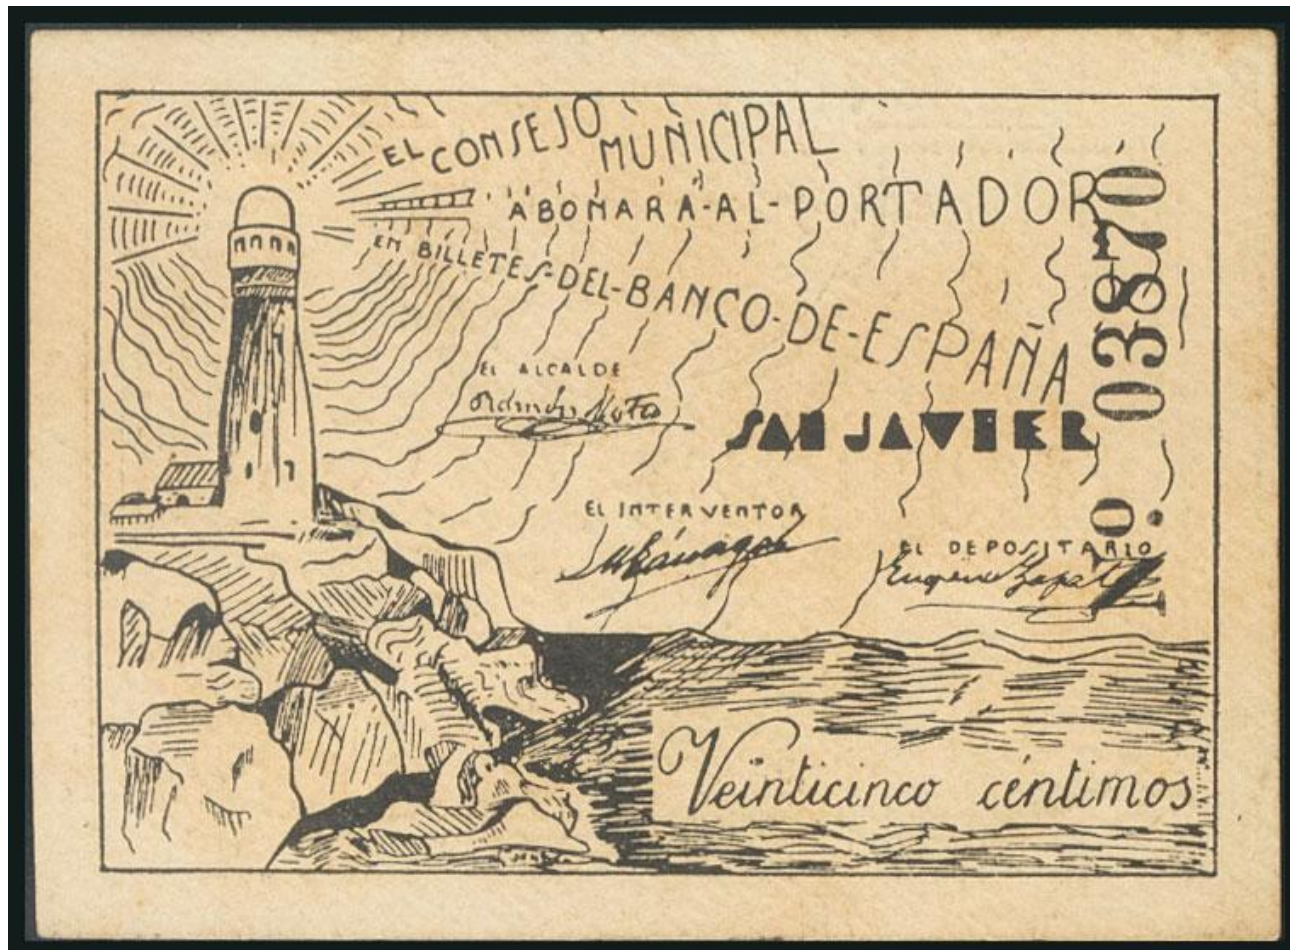 EL CONSEJO MUNICIPAL
ABONARÁ-AL-PORTADOR
EN BILLETES-DEL-BANCO-DE-ESPAÑA
EL ALCALDE
SAN JAVIER
EL INTERVENTOR
EL DEPOSITARIO
Eugenio Zapata
Nº 03870
Veinticinco céntimos